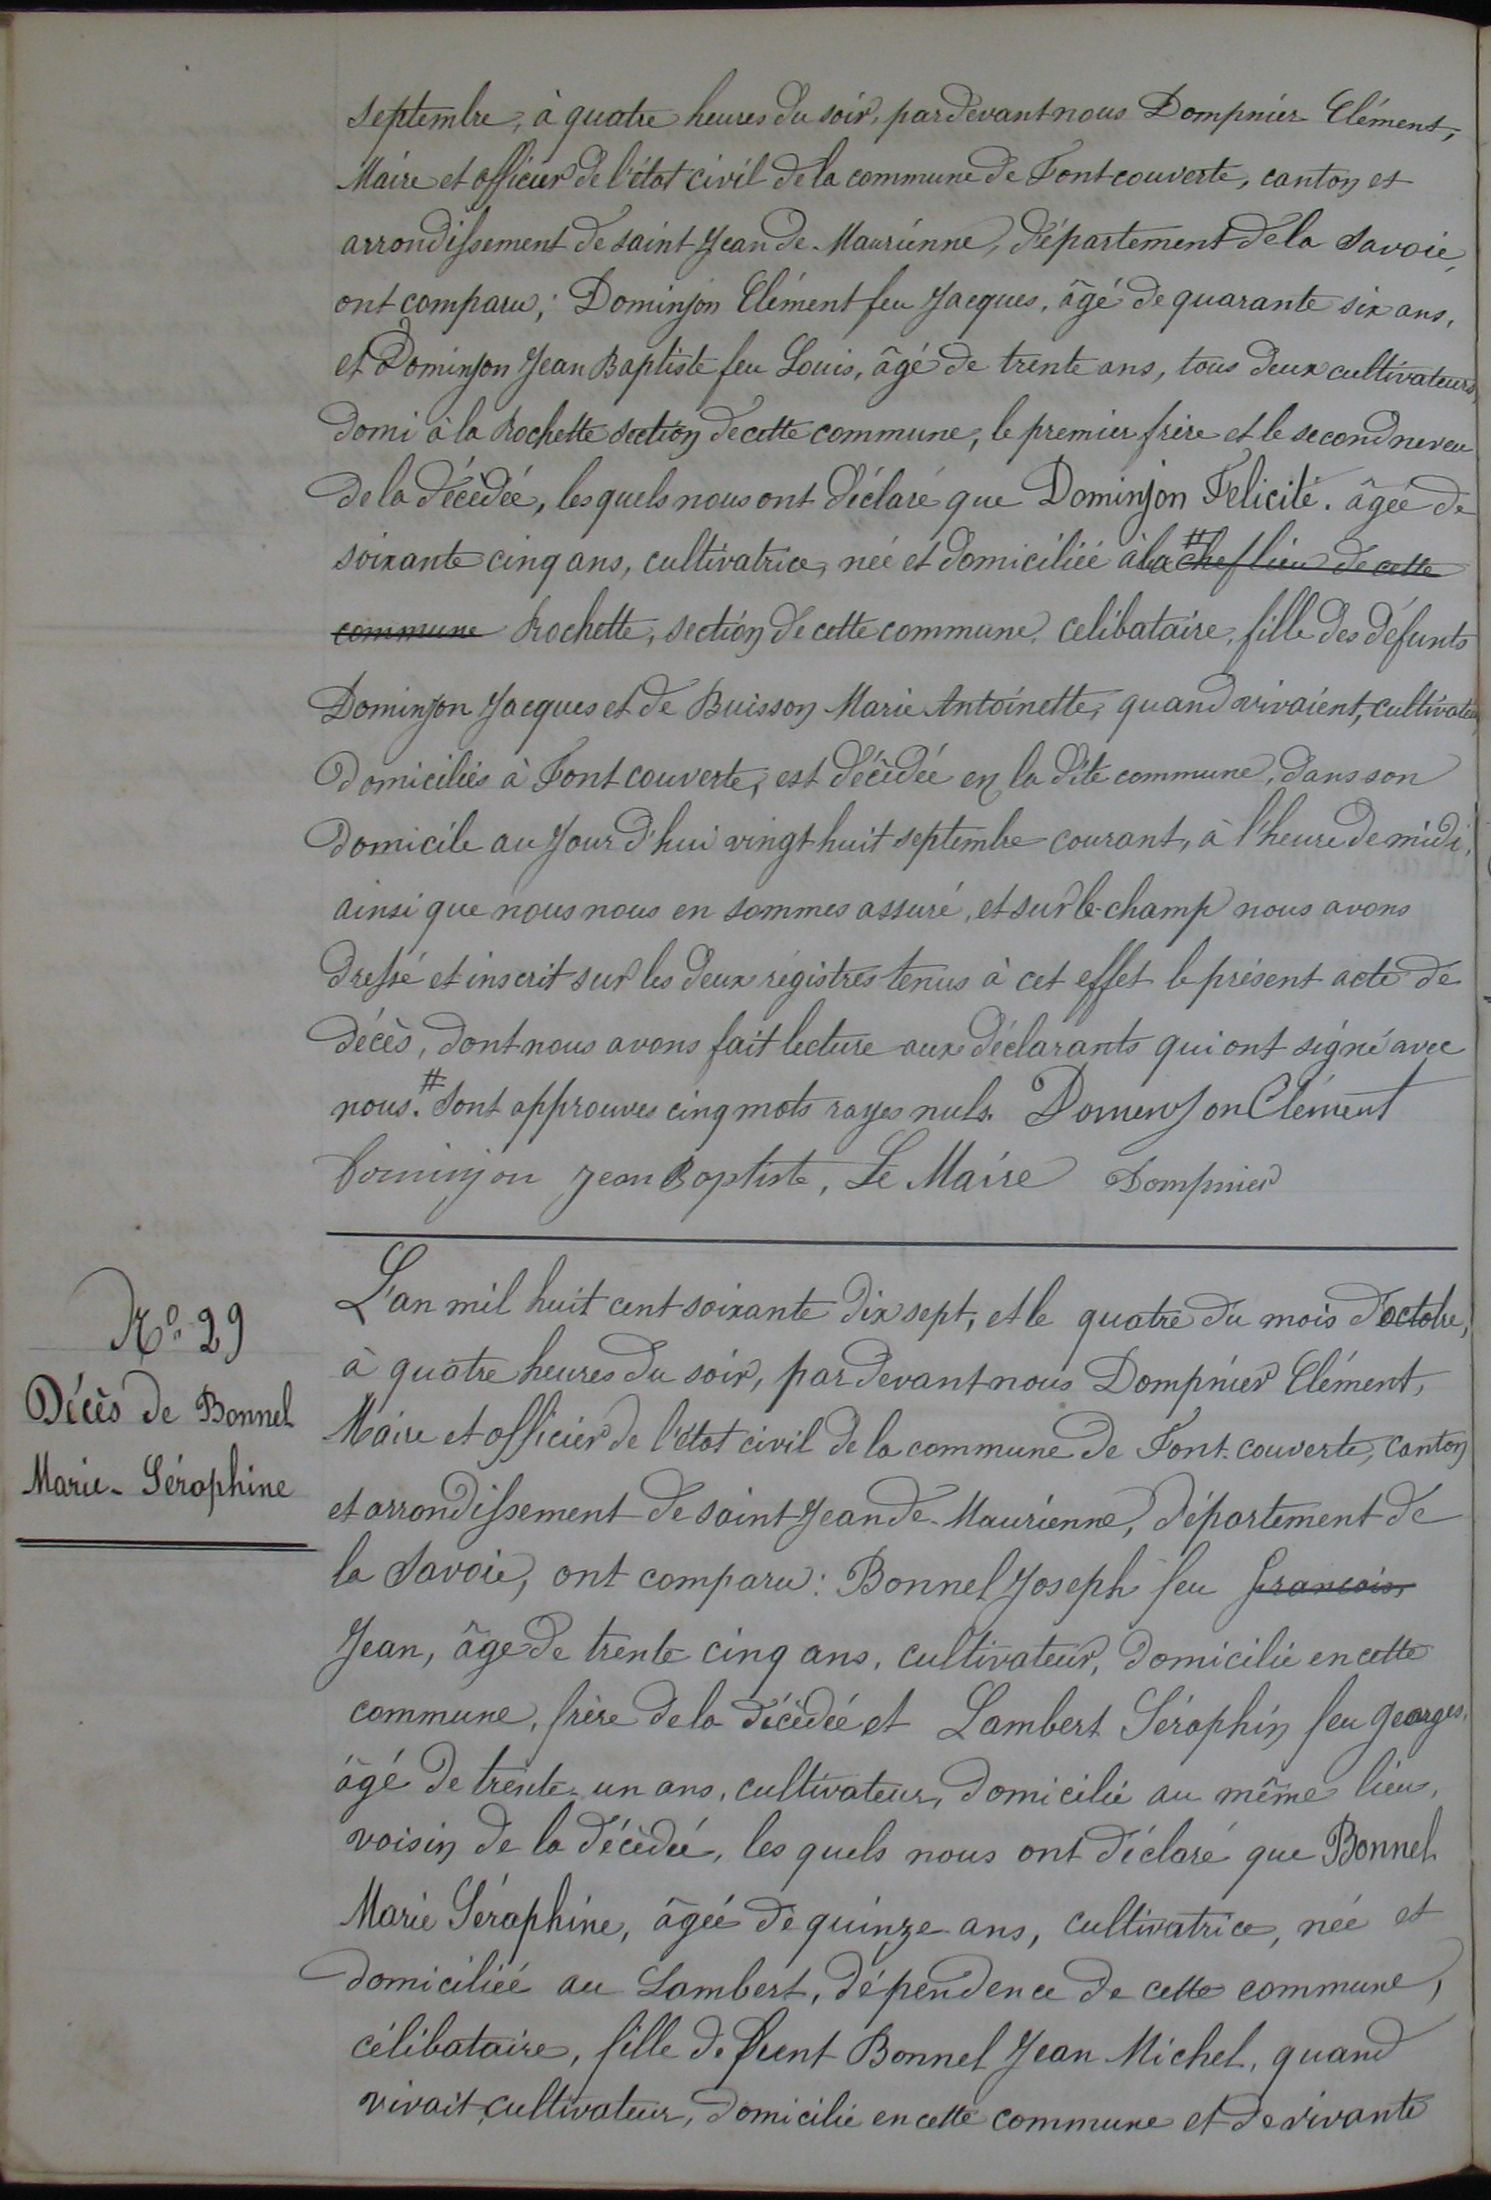 septembre, à quatre heures du soir, pardevant nous Dompnier Clément,
Maire et officier de l'état civil de la commune de Fontcouverte, canton et
arrondissement de saint Jean de Maurienne, département de la Savoie,
ont comparu; Dominjon Clément feu Jacques, âgé de quarante six ans,
et Dominjon Jean Baptiste feu Louis, âgé de trente ans, tous deux cultivateurs,
domi à la Rochette section de cette commune, le premier frère et le second neveu
de la décédée, les quels nous ont déclaré que Dominjon Felicité. âgée de
soixante cinq ans, cultivatrice, née et domiciliée à la # chef lieu de cette
commune Rochette, section de cette commune, celibataire, fille des défunts
Dominjon Jacques et de Buisson Marie Antoinette, quand vivaient, cultivateurs
domiciliés à Fontcouverte, est décédée en la dite commune, dans son
domicile au Jour d'hui vingt huit septembre courant, à l'heure de midi,
ainsi que nous nous en sommes assuré, et sur le-champ nous avons
dressé et inscrit sur les deux régistres tenus à cet effet le présent acte de
décès, dont nous avons fait lecture aux déclarants qui ont signé avec
nous. # Sont approuves cinq mots rayes nuls. Domenjon Clément
Dominjon Jean Baptiste, Le Maire Dompnier
N° 29
Décès de Bonnel
Marie-Séraphine
L'an mil huit cent soixante dix sept, et le quatre du mois d'octobre,
à quatre heures du soir, pardevant nous Dompnier Clément,
Maire et officier de l'état civil de la commune de Font-couverte, canton
et arrondissement de saint Jean de-Maurienne, département de
la Savoie, ont comparu: Bonnel Joseph feu françois,
Jean, âgé de trente cinq ans, cultivateur, domicilié en cette
commune, frère de la décédée et Lambert Séraphin feu Georges,
âgé de trente-un ans, cultivateur, domicilié au même lieu,
voisin de la décédée, les quels nous ont déclaré que Bonnel
Marie Séraphine, âgée de quinze ans, cultivatrice, née et
domiciliée au Lambert, dépendence de cette commune,
célibataire, fille de feent Bonnel Jean Michel, quand
vivait, cultivateur, domicilié en cette commune et de vivante